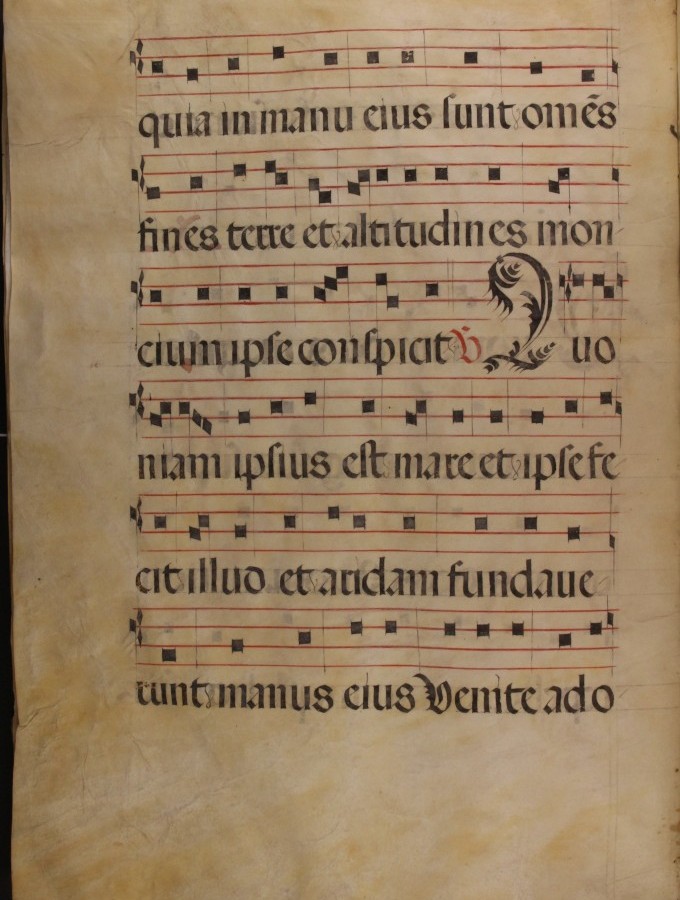 quia in manu eius sunt omēs
fines terre et altitudines mon
cium ipse conspicit V Quo
niam ipsius est mare et ipse fe
cit illud et aridam fundaue
runt manus eius Venite ado